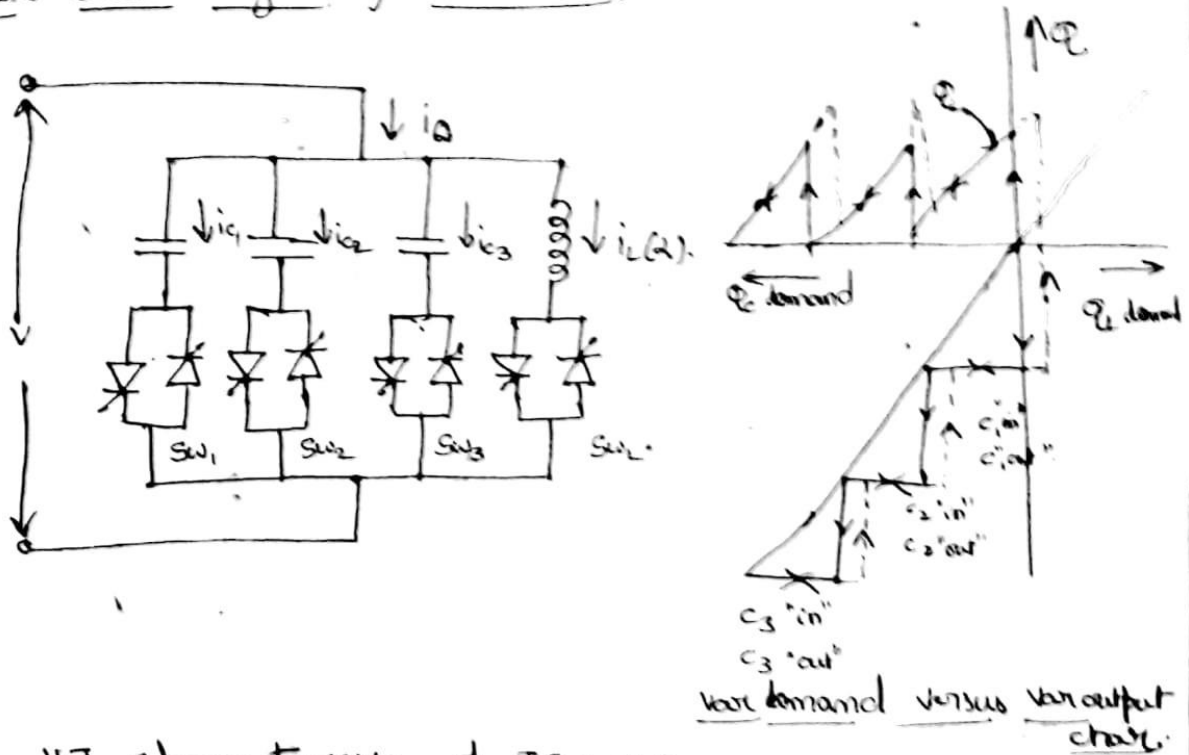 ↓ iQ
↓ic1
↓ic2
↓ic3
↓ iL(α).
SW1
SW2
SW3
SWL.
↑Q
Q
Qc demand
QL demand
C1 "in"
C1 "out"
C2 "in"
C2 "out"
C3 "in"
C3 "out"
Var demand versus Var output
char.